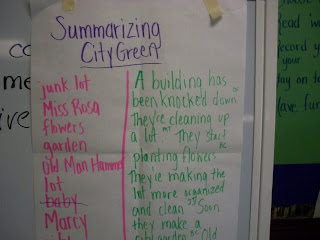 Summarizing
City Green
junk lot
Miss Rosa
flowers
garden
Old Man Hammer
lot
baby
Marcy
A building has
been knocked down.
They're cleaning up
a lot. They start
planting flowers.
They're making the
lot more organized
and clean. Soon
they make a
city garden. Old
Read
Record y
your
Have fun